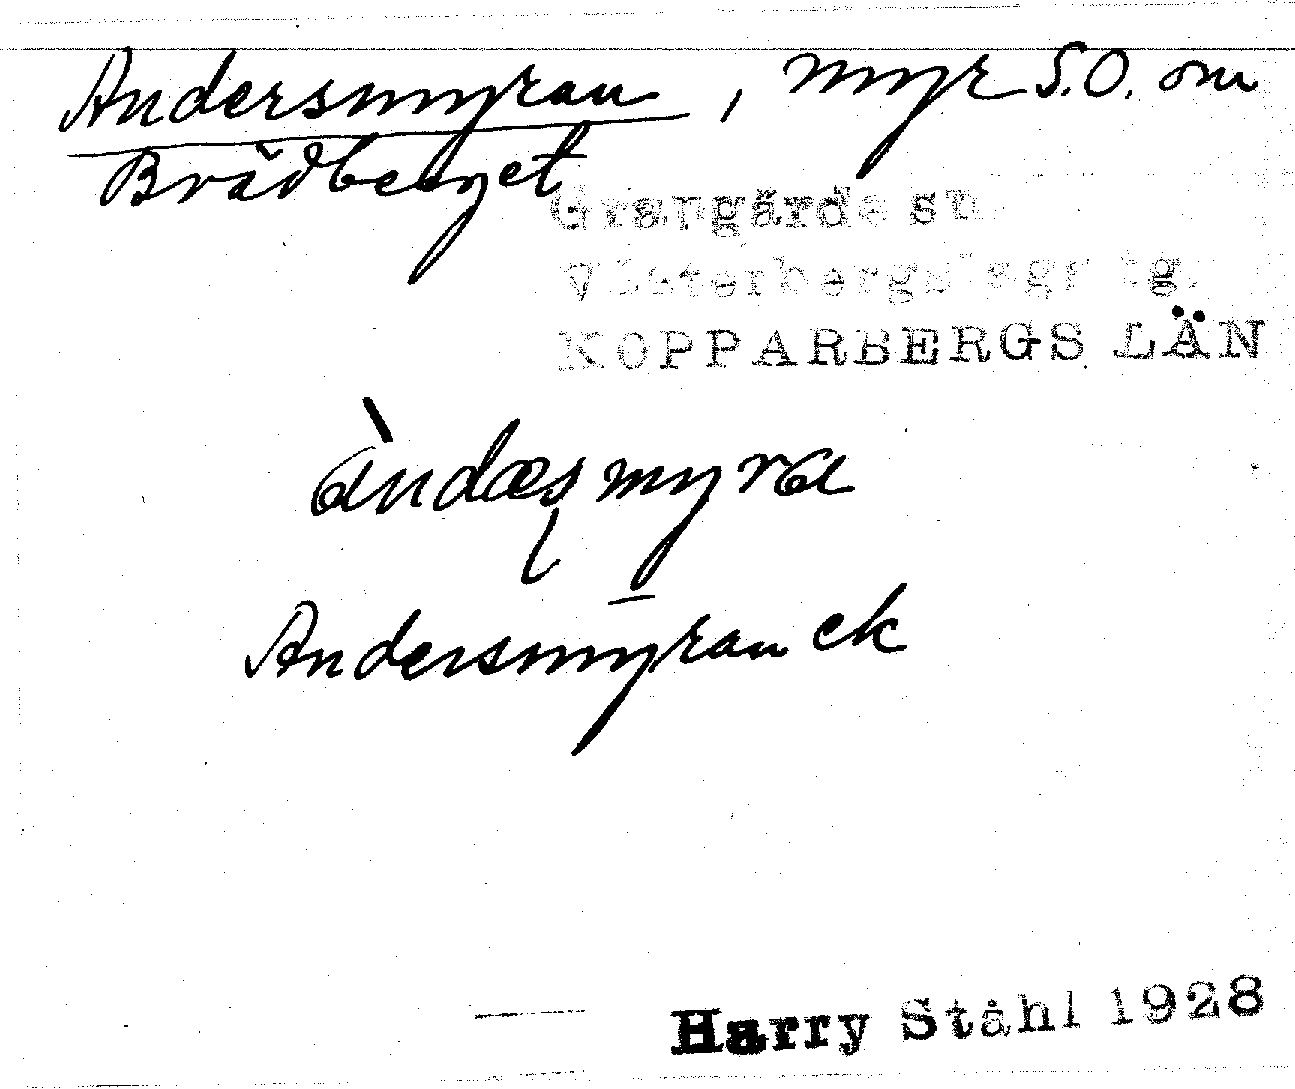 Andersmyran, myr S.O. om
Brädberget
Grangärde sn
Västerbergslags tg.
KOPPARBERGS LÄN
àndæșmyra
Andersmyran ek
Harry Ståhl 1928